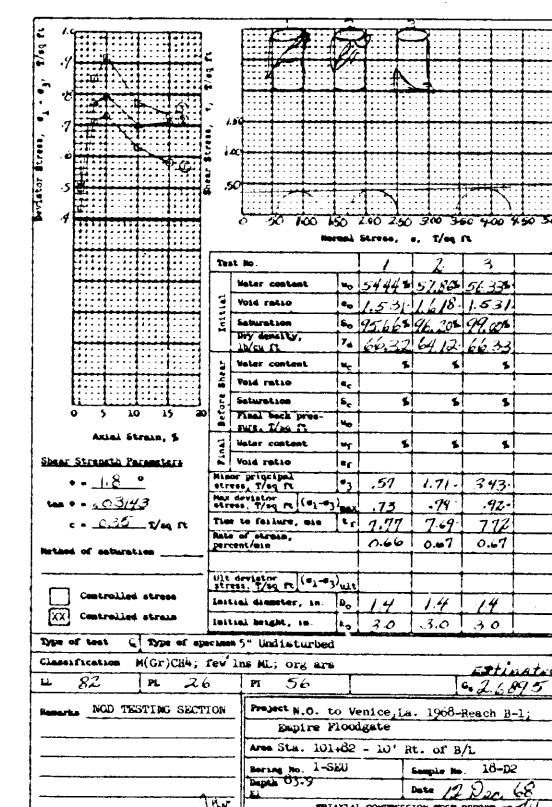 Deviator Stress, σ1 - σ3, T/sq ft
1.0
.9
.8
.7
.6
.5
.4
0 5 10 15 20
Axial Strain, %
Shear Stress, τ, T/sq ft
1.50
1.00
.50
0 .50 1.00 1.50 2.00 2.50 3.00 3.50 4.00 4.50
Normal Stress, σ, T/sq ft
Shear Strength Parameters
φ = 1.8 °
tan φ = .03143
c = 0.35 T/sq ft
Method of saturation
Controlled stress
XX Controlled strain
Test No. 1 2 3
Initial
Water content w0 54.44% 57.86% 56.33%
Void ratio e0 1.531 1.618 1.531
Saturation S0 95.66% 96.20% 99.00%
Dry density, lb/cu ft γd 66.32 64.12 66.33
Before Shear
Water content wc % % %
Void ratio ec
Saturation Sc % % %
Final back pressure, T/sq ft u0
Final
Water content wf % % %
Void ratio ef
Minor principal stress, T/sq ft σ3 .57 1.71 3.43
Max deviator stress, T/sq ft (σ1-σ3)max .73 .79 .92
Time to failure, min tf 7.77 7.69 7.72
Rate of strain, percent/min 0.66 0.67 0.67
Ult deviator stress, T/sq ft (σ1-σ3)ult
Initial diameter, in. D0 1.4 1.4 1.4
Initial height, in. H0 3.0 3.0 3.0
Type of test Q Type of specimen 5" Undisturbed
Classification M(Gr)CH4; few lns ML; org ars
LL 82 PL 26 PI 56 Estimated Gs 2.6895
Remarks NOD TESTING SECTION
Project N.O. to Venice, La. 1968-Reach B-1;
Empire Floodgate
Area Sta. 101+82 - 10' Rt. of B/L
Boring No. 1-SEU Sample No. 18-D2
Depth El 83.9 Date 12 Dec 68
TRIAXIAL COMPRESSION TEST REPORT